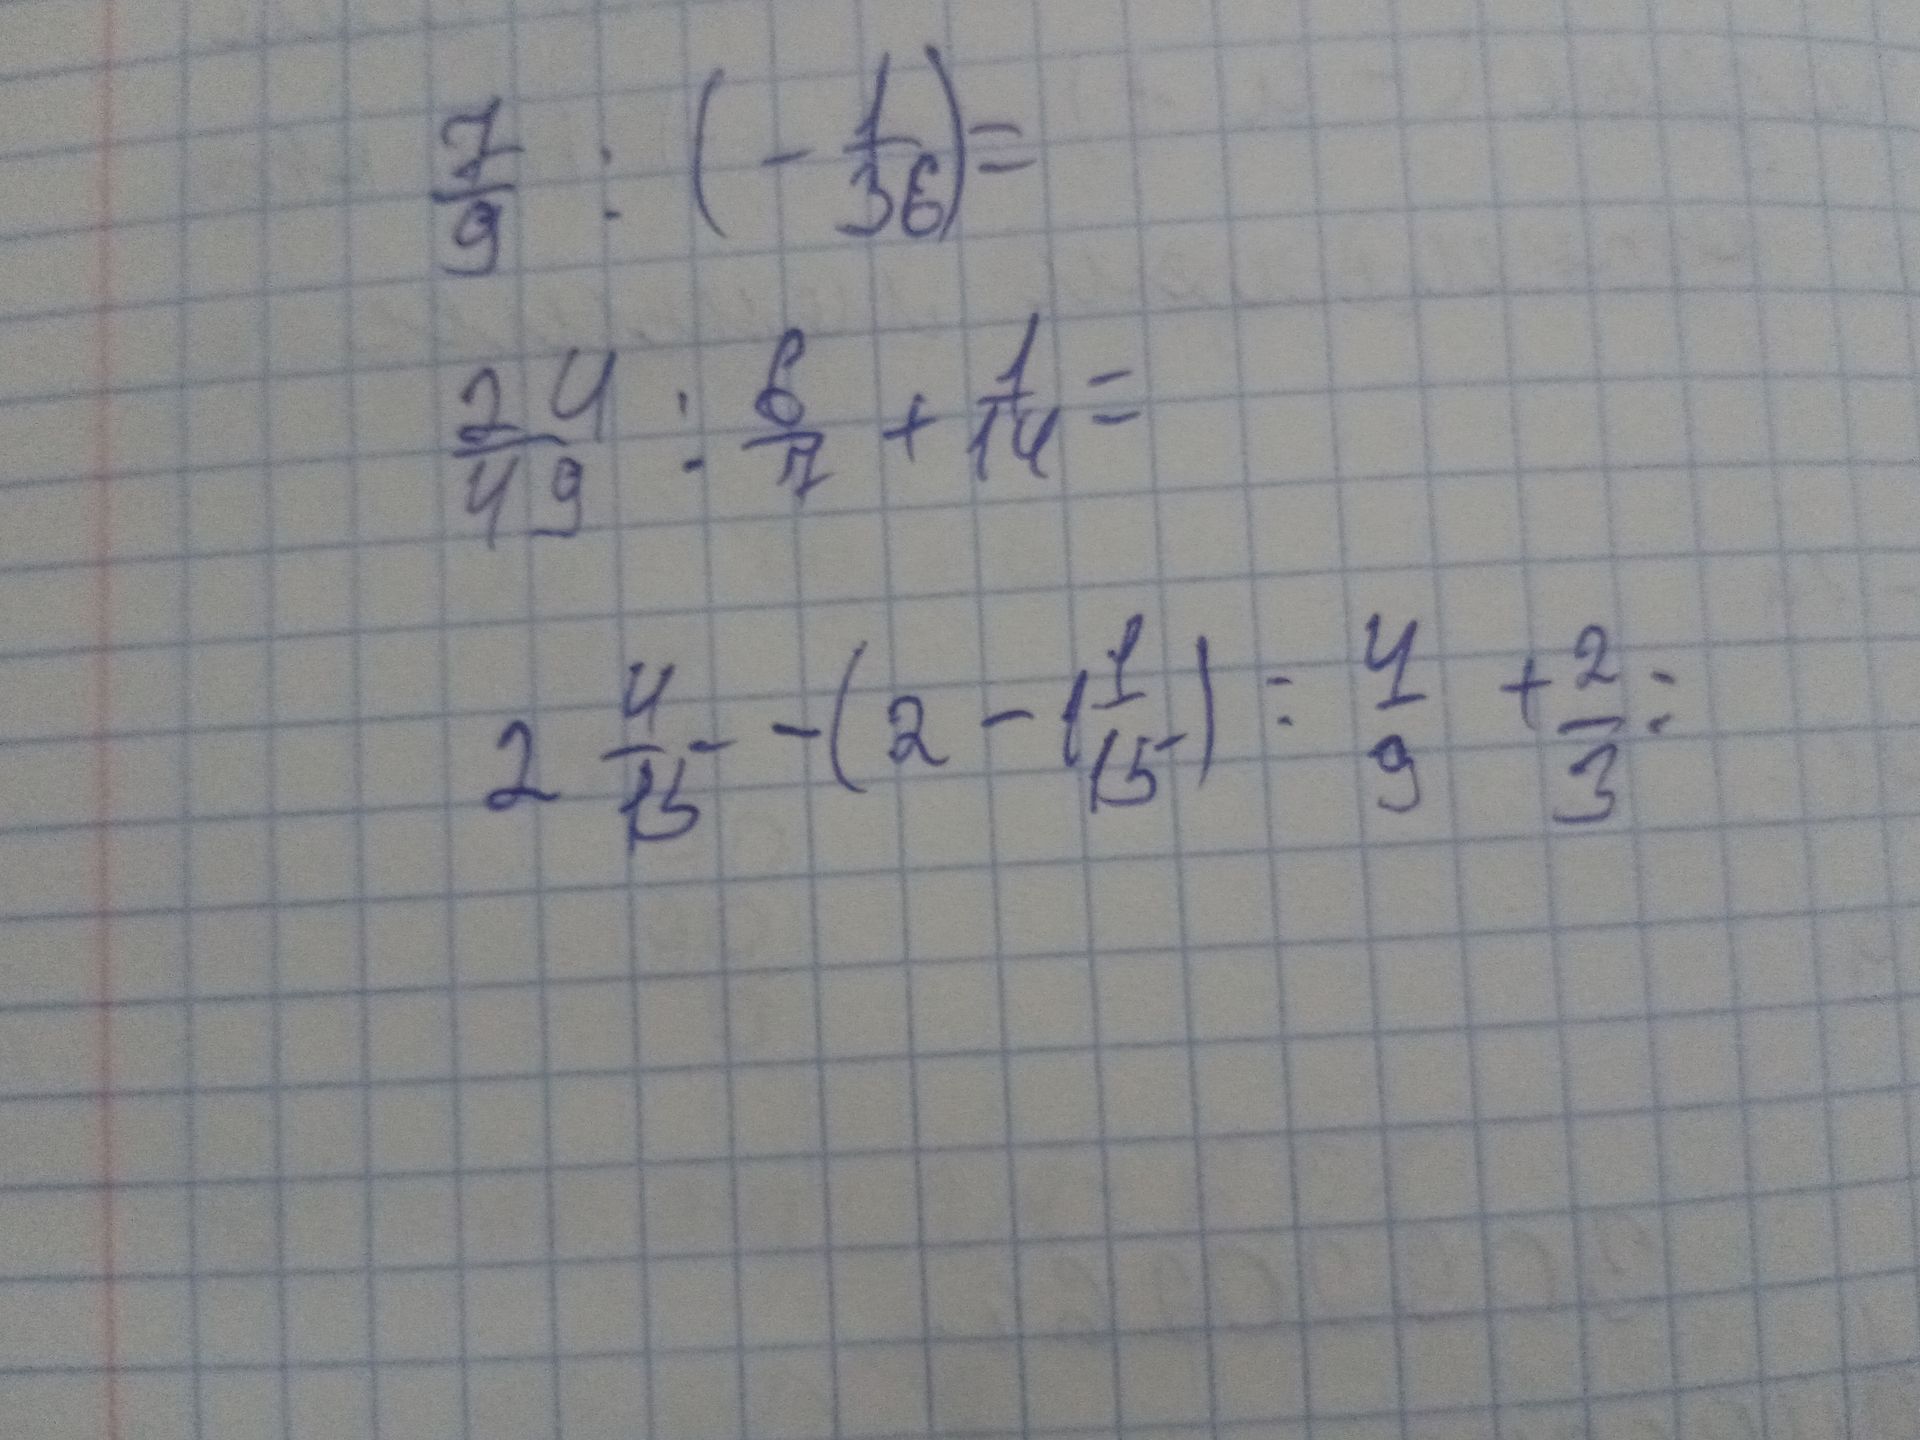 7/9 : (- 1/36) =
24/49 : 6/7 + 1/14 =
2 4/15 - (2 - 1 1/15) : 4/9 + 2/3 =